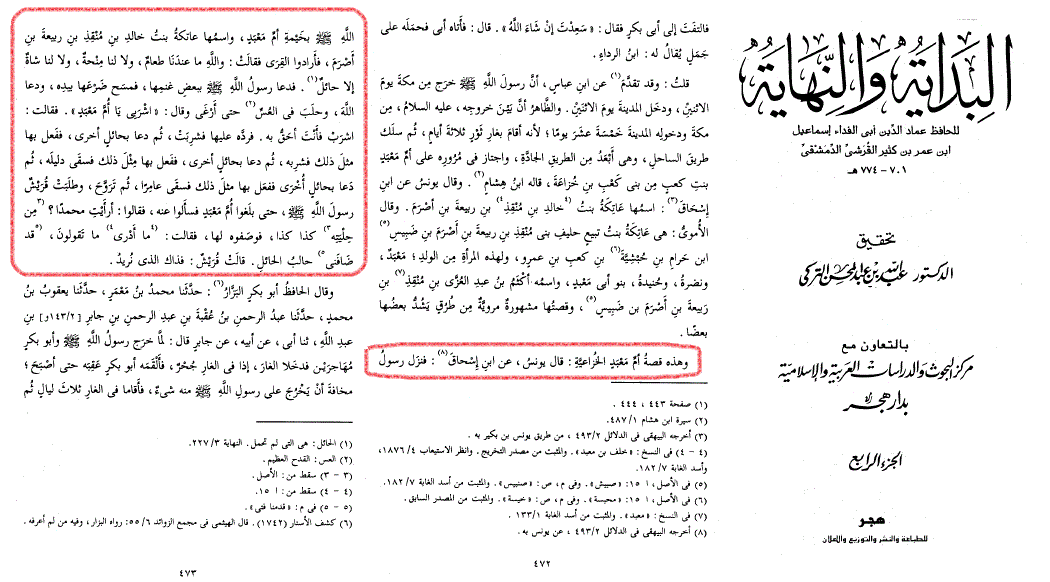 البداية والنهاية
للحافظ عماد الدين أبى الفداء إسماعيل
ابن عمر بن كثير القرشى الدمشقى
٧٠١ - ٧٧٤ هـ
تحقيق
الدكتور عبد الله بن عبد المحسن التركى
بالتعاون مع
مركز البحوث والدراسات العربية والإسلامية
بدار هجر
الجزء الرابع
هجر
للطباعة والنشر والتوزيع والإعلان
فالتفَتَ إلى أبى بكرٍ فقال : « سَعِدْتَ إنْ شَاءَ اللَّهُ » . قال : فأتاه أبى فحمَله على
جَملٍ يُقالُ له : ابنُ الرداءِ .
قلتُ : وقد تقدَّم(١) عن ابنِ عباسٍ، أنَّ رسولَ اللَّهِ ﷺ خرَج مِن مكةَ يومَ
الاثنينِ، ودخَل المدينةَ يومَ الاثنَيْنِ . والظاهرُ أنَّ بَيْنَ خروجِه، عليه السلامُ، مِن
مكةَ ودخولِه المدينةَ خمسةَ عشَرَ يومًا؛ لأنه أقامَ بغارِ ثَوْرٍ ثلاثةَ أيامٍ، ثم سلَك
طريقَ الساحلِ، وهى أبْعَدُ مِن الطريقِ الجادَّةِ، واجتاز فى مُرُورِه على أُمِّ مَعْبَدٍ
بنتِ كعبٍ مِن بنى كَعْبِ بنِ خُزاعةَ، قاله ابنُ هشامٍ(٢) . وقال يونسُ عن ابنِ
إسْحَاقَ(٣) : اسمُها عاتِكَةُ بنتُ (٤)خالدِ بنِ مُنْقِذِ(٤) بنِ ربيعةَ بنِ أصْرَمَ . وقال
الأُمَوىُّ : هى عَاتِكَةُ بنتُ تبيعٍ حليفِ بنى مُنْقِذِ بنِ ربيعةَ بنِ أصْرَمَ بنِ ضَبِيسِ(٥)
ابنِ حَرامِ بنِ حُبْشِيَّةَ(٦) بنِ كعبِ بنِ عمرٍو، ولهذه المرأةِ مِن الولدِ؛ مَعْبَدٌ،
ونضرةُ، وحُنيدةُ، بنو أبى مَعْبدٍ، واسمُه أكْثَمُ بنُ عبدِ العُزَّى بنِ مُنْقِذِ(٧) بنِ
رَبيعةَ بنِ أصْرَمَ بنِ ضَبِيسٍ(٥)، وقصتُها مشهورةٌ مرويَّةٌ مِن طُرُقٍ يَشُدُّ بعضُها
بعضًا .
وهذه قصةُ أمِّ مَعْبَدٍ الخُزاعيَّةِ : قال يونسُ، عن ابنِ إسْحاقَ(٨) : فنزَل رسولُ
(١) صفحة ٤٤٣ ، ٤٤٤ .
(٢) سيرة ابن هشام ٤٨٧/١ .
(٣) أخرجه البيهقى فى الدلائل ٤٩٣/٢ ، من طريق يونس بن بكير به .
(٤ - ٤) فى النسخ : « خلف بن معبد » . والمثبت من مصدر التخريج . وانظر الاستيعاب ١٨٧٦/٤،
وأسد الغابة ١٨٢/٧ .
(٥) فى الأصل، ا ١٥ : « صبيش » . وفى م، ص : « صنبيس » . والمثبت من أسد الغابة ١٨٢/٧ .
(٦) فى الأصل، ا ١٥ : « محيسة » . وفى م، ص : « خيسة » . والمثبت من المصدر السابق .
(٧) فى النسخ : « معبد » . والمثبت من أسد الغابة ١٣٣/١ .
(٨) أخرجه البيهقى فى الدلائل ٤٩٣/٢ ، عن يونس به .
٤٧٢
اللَّهِ ﷺ بخَيْمةِ أُمِّ مَعْبَدٍ، واسمُها عاتكةُ بنتُ خالدِ بنِ مُنْقِذِ بنِ رَبِيعةَ بنِ
أصْرَمَ، فأرادوا القِرَى فقالتْ : واللَّهِ ما عندَنا طعامٌ، ولا لنا مِنْحةٌ، ولا لنا شاةٌ
إلا حائلٌ(١) . فدعا رسولُ اللَّهِ ﷺ ببعضِ غنمِها، فمسَح ضَرْعَها بيدِه، ودعا
اللَّهَ، وحلَب فى العُسِّ(٢) حتى أرْغَى وقال : « اشْرَبى يا أمَّ مَعْبَدٍ » . فقالت :
اشرَبْ فأنْتَ أحَقُّ به . فردَّه عليها فشرِبَتْ، ثم دعا بحائلٍ أخرى، ففعَل بها
مثلَ ذلك فشرِبه، ثم دعا بحائلٍ أُخرى، ففعَل بها مِثْلَ ذلك فسقَى دليلَه، ثم
دَعا بحائلٍ أُخْرَى ففعَل بها مثلَ ذلك فسقَى عامرًا، ثم تَروَّح، وطلَبَتْ قُرَيْشٌ
رسولَ اللَّهِ ﷺ، حتى بلَغوا أُمَّ مَعْبَدٍ فسألوا عنه، فقالوا : أرأيْتِ محمدًا ؟ (٣)مِن
حِلْيَتِه(٣) كذا كذا، فوصَفوه لها، فقالت : (٤)ما أدْرى(٤) ما تقولونَ، (٥)قد
ضافَنى(٥) حالبُ الحائلِ . قالتْ قُرَيْشٌ : فذاك الذى نُرِيدُ .
وقال الحافظُ أبو بكرٍ البزَّارُ(٦) : حدَّثنا محمدُ بنُ مَعْمَرٍ، حدَّثنا يعقوبُ بنُ
محمدٍ، حدَّثنا عبدُ الرحمنِ بنُ عُقْبةَ بنِ عبدِ الرحمنِ بنِ جابرِ [١٤٣/٢و] بنِ
عبدِ اللَّهِ، ثنا أبى، عن أبيه، عن جابرٍ قال : لمَّا خرَج رسولُ اللَّهِ ﷺ وأبو بكرٍ
مُهَاجِرَيْنِ فدخلا الغارَ، إذا فى الغارِ جُحْرٌ، فألْقَمَه أبو بكرٍ عَقِبَه حتى أصْبَحَ؛
مخافةَ أنْ يَخْرُجَ على رسولِ اللَّهِ ﷺ منه شىءٌ، فأقاما فى الغارِ ثلاثَ ليالٍ ثُم
(١) الحائل : هى التى لم تحمل . النهاية ٢٢٧/٣ .
(٢) العس : القدح العظيم .
(٣ - ٣) سقط من : الأصل .
(٤ - ٤) سقط من : ا ١٥ .
(٥ - ٥) فى م : « قدمنا فتى » .
(٦) كشف الأستار (١٧٤٢) . قال الهيثمى فى مجمع الزوائد ٥٥/٦ : رواه البزار، وفيه من لم أعرفه .
٤٧٣